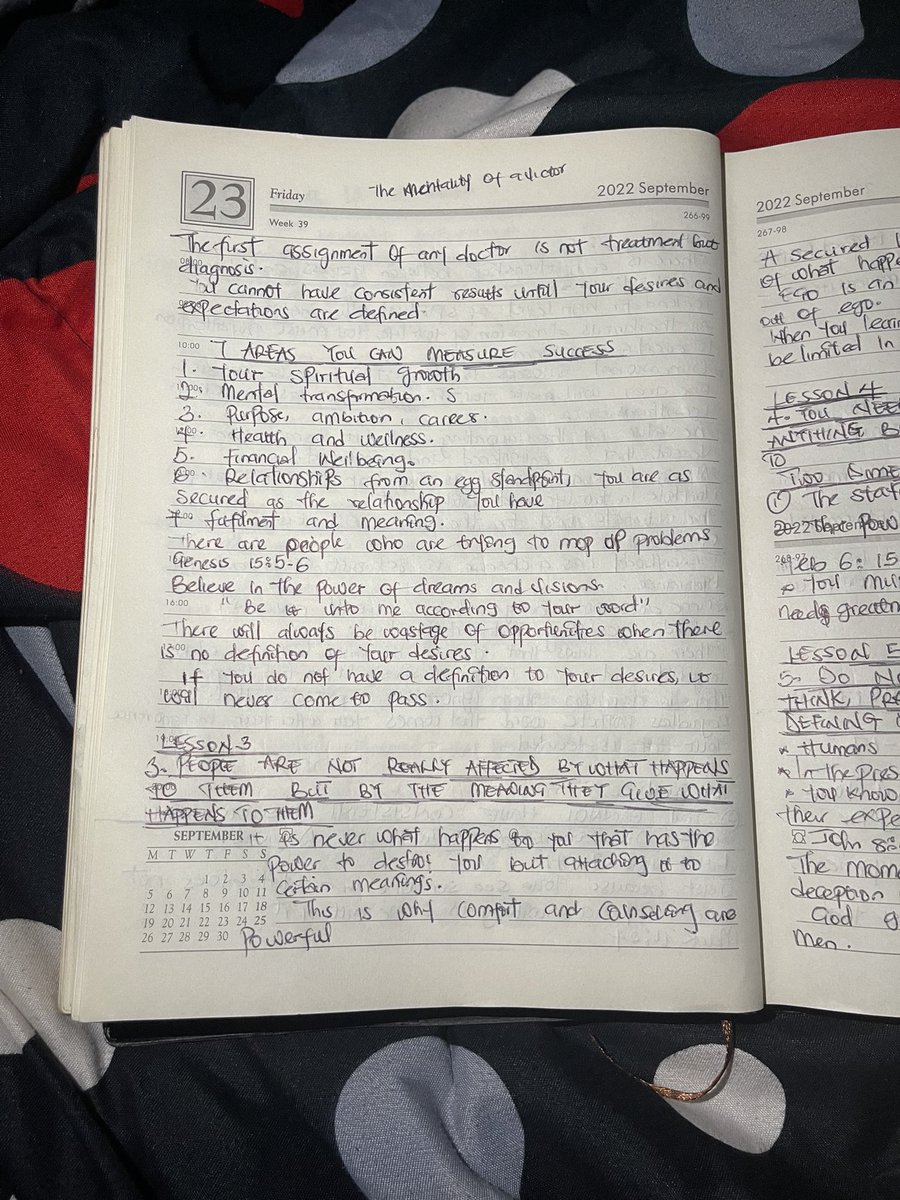 The mentality of a victor
23
Friday
2022 September
Week 39
266-99
The first assignment of any doctor is not treatment but
diagnosis.
You cannot have consistent results until your desires and
expectations are defined.
10:00 7 AREAS YOU CAN MEASURE SUCCESS
1. Your spiritual growth
2. Mental transformation. S
3. Purpose, ambition, career.
4. Health and wellness.
5. Financial Wellbeing.
6. Relationships from an egg standpoint, you are as
secured as the relationship you have
7 fulfilment and meaning.
There are people who are trying to mop up problems
Genesis 15:5-6
Believe in the power of dreams and visions.
16:00 "Be it unto me according to your word"
There will always be wastage of opportunities when there
is no definition of your desires.
If you do not have a definition to your desires, it
will never come to pass.
19:00
LESSON 3
3. PEOPLE ARE NOT REALLY AFFECTED BY WHAT HAPPENS
TO THEM BUT BY THE MEANING THEY GIVE WHAT
HAPPENS TO THEM
It is never what happens to you that has the
power to destroy you but attaching it to
certain meanings.
This is why comfort and counseling are
powerful
SEPTEMBER
M T W T F S S
1 2 3 4
5 6 7 8 9 10 11
12 13 14 15 16 17 18
19 20 21 22 23 24 25
26 27 28 29 30
2022 September
267-98
A secured
of what happe
EGO is an
out of ego.
When you lear
be limited in
LESSON 4
4. YOU NEE
ANYTHING B
TO
Two Dime
① The stat
2022 September
268-97
Heb 6:15
* You mu
needs greate
LESSON
5. DO NO
THINK, PR
DEFINING
* Humans
* In the pres
* You know
their expe
John 8:
The mom
deception
God g
men.